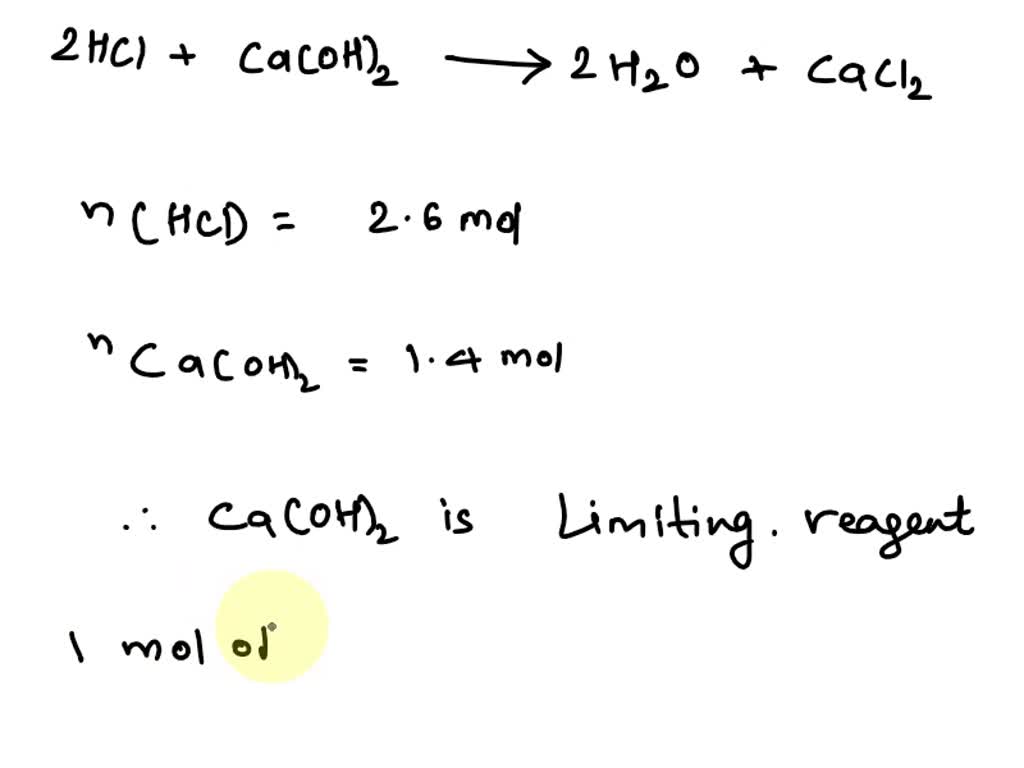 2HCl + Ca(OH)2 ⟶ 2H2O + CaCl2
n(HCl) = 2.6 mol
nCa(OH)2 = 1.4 mol
∴ Ca(OH)2 is Limiting. reagent
1 mol of